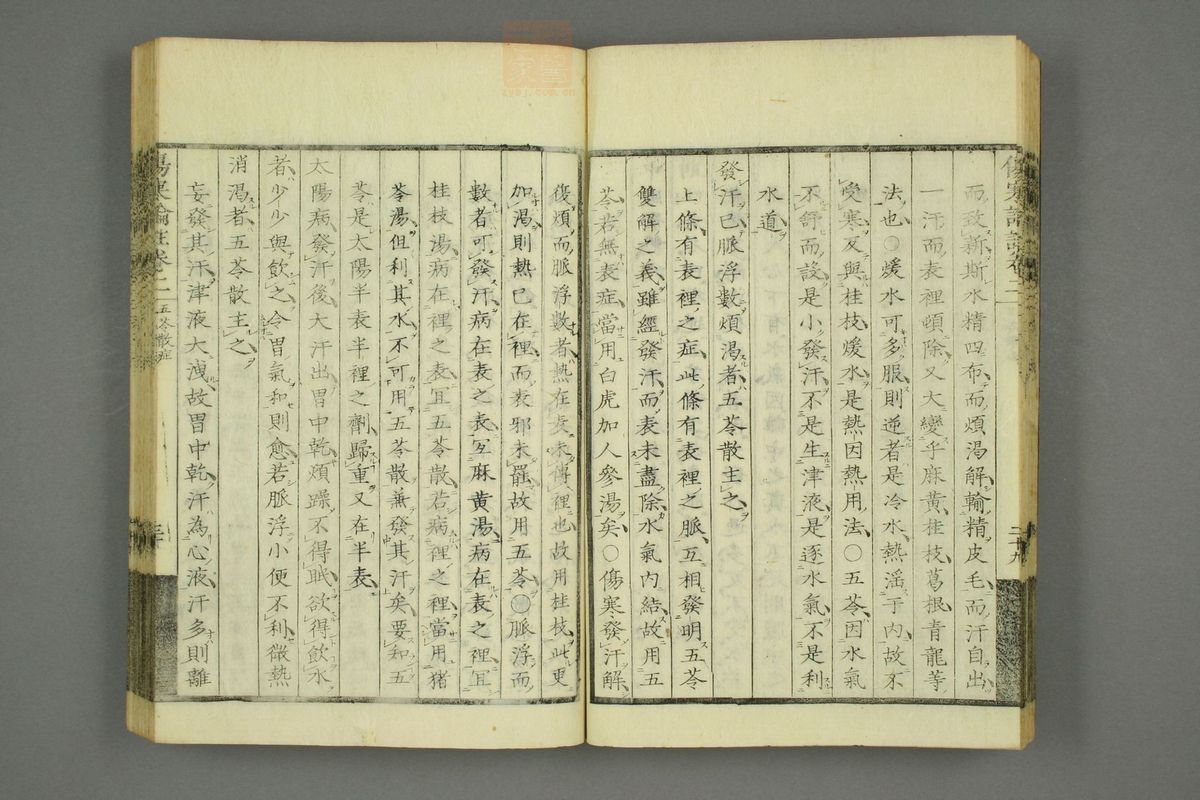 而致新斯水精四布而煩渴解輸精皮毛而汗自出
一汗而表裡頓除又大變乎麻黃桂枝葛根青龍等
法也○煖水可多服則逆者是冷水熱淫于內故不
受寒反與桂枝煖水是熱因熱用法○五苓因水氣
不舒而設是小發汗不是生津液是逐水氣不是利
水道
發汗已脈浮數煩渴者五苓散主之
上條有表裡之症此條有表裡之脈互相發明五苓
雙解之義雖經發汗而表未盡除水氣內結故用五
苓若無表症當用白虎加人參湯矣○傷寒發汗解
二十九
復煩而脈浮數者熱在表未傳裡也故用桂枝此更
加渴則熱已在裡而表邪未罷故用五苓○脈浮而
數者可發汗病在表之表宜麻黃湯病在表之裡宜
桂枝湯病在裡之表宜五苓散若病裡之裡當用猪
苓湯但利其水不可用五苓散兼發其汗矣要知五
苓是太陽半表半裡之劑歸重又在半表
太陽病發汗後大汗出胃中乾煩躁不得眠欲得飲水
者少少與飲之令胃氣和則愈若脈浮小便不利微熱
消渴者五苓散主之
妄發其汗津液大洩故胃中乾汗為心液汗多則離
傷寒論註卷二 五苓散症
zysj.com.cn